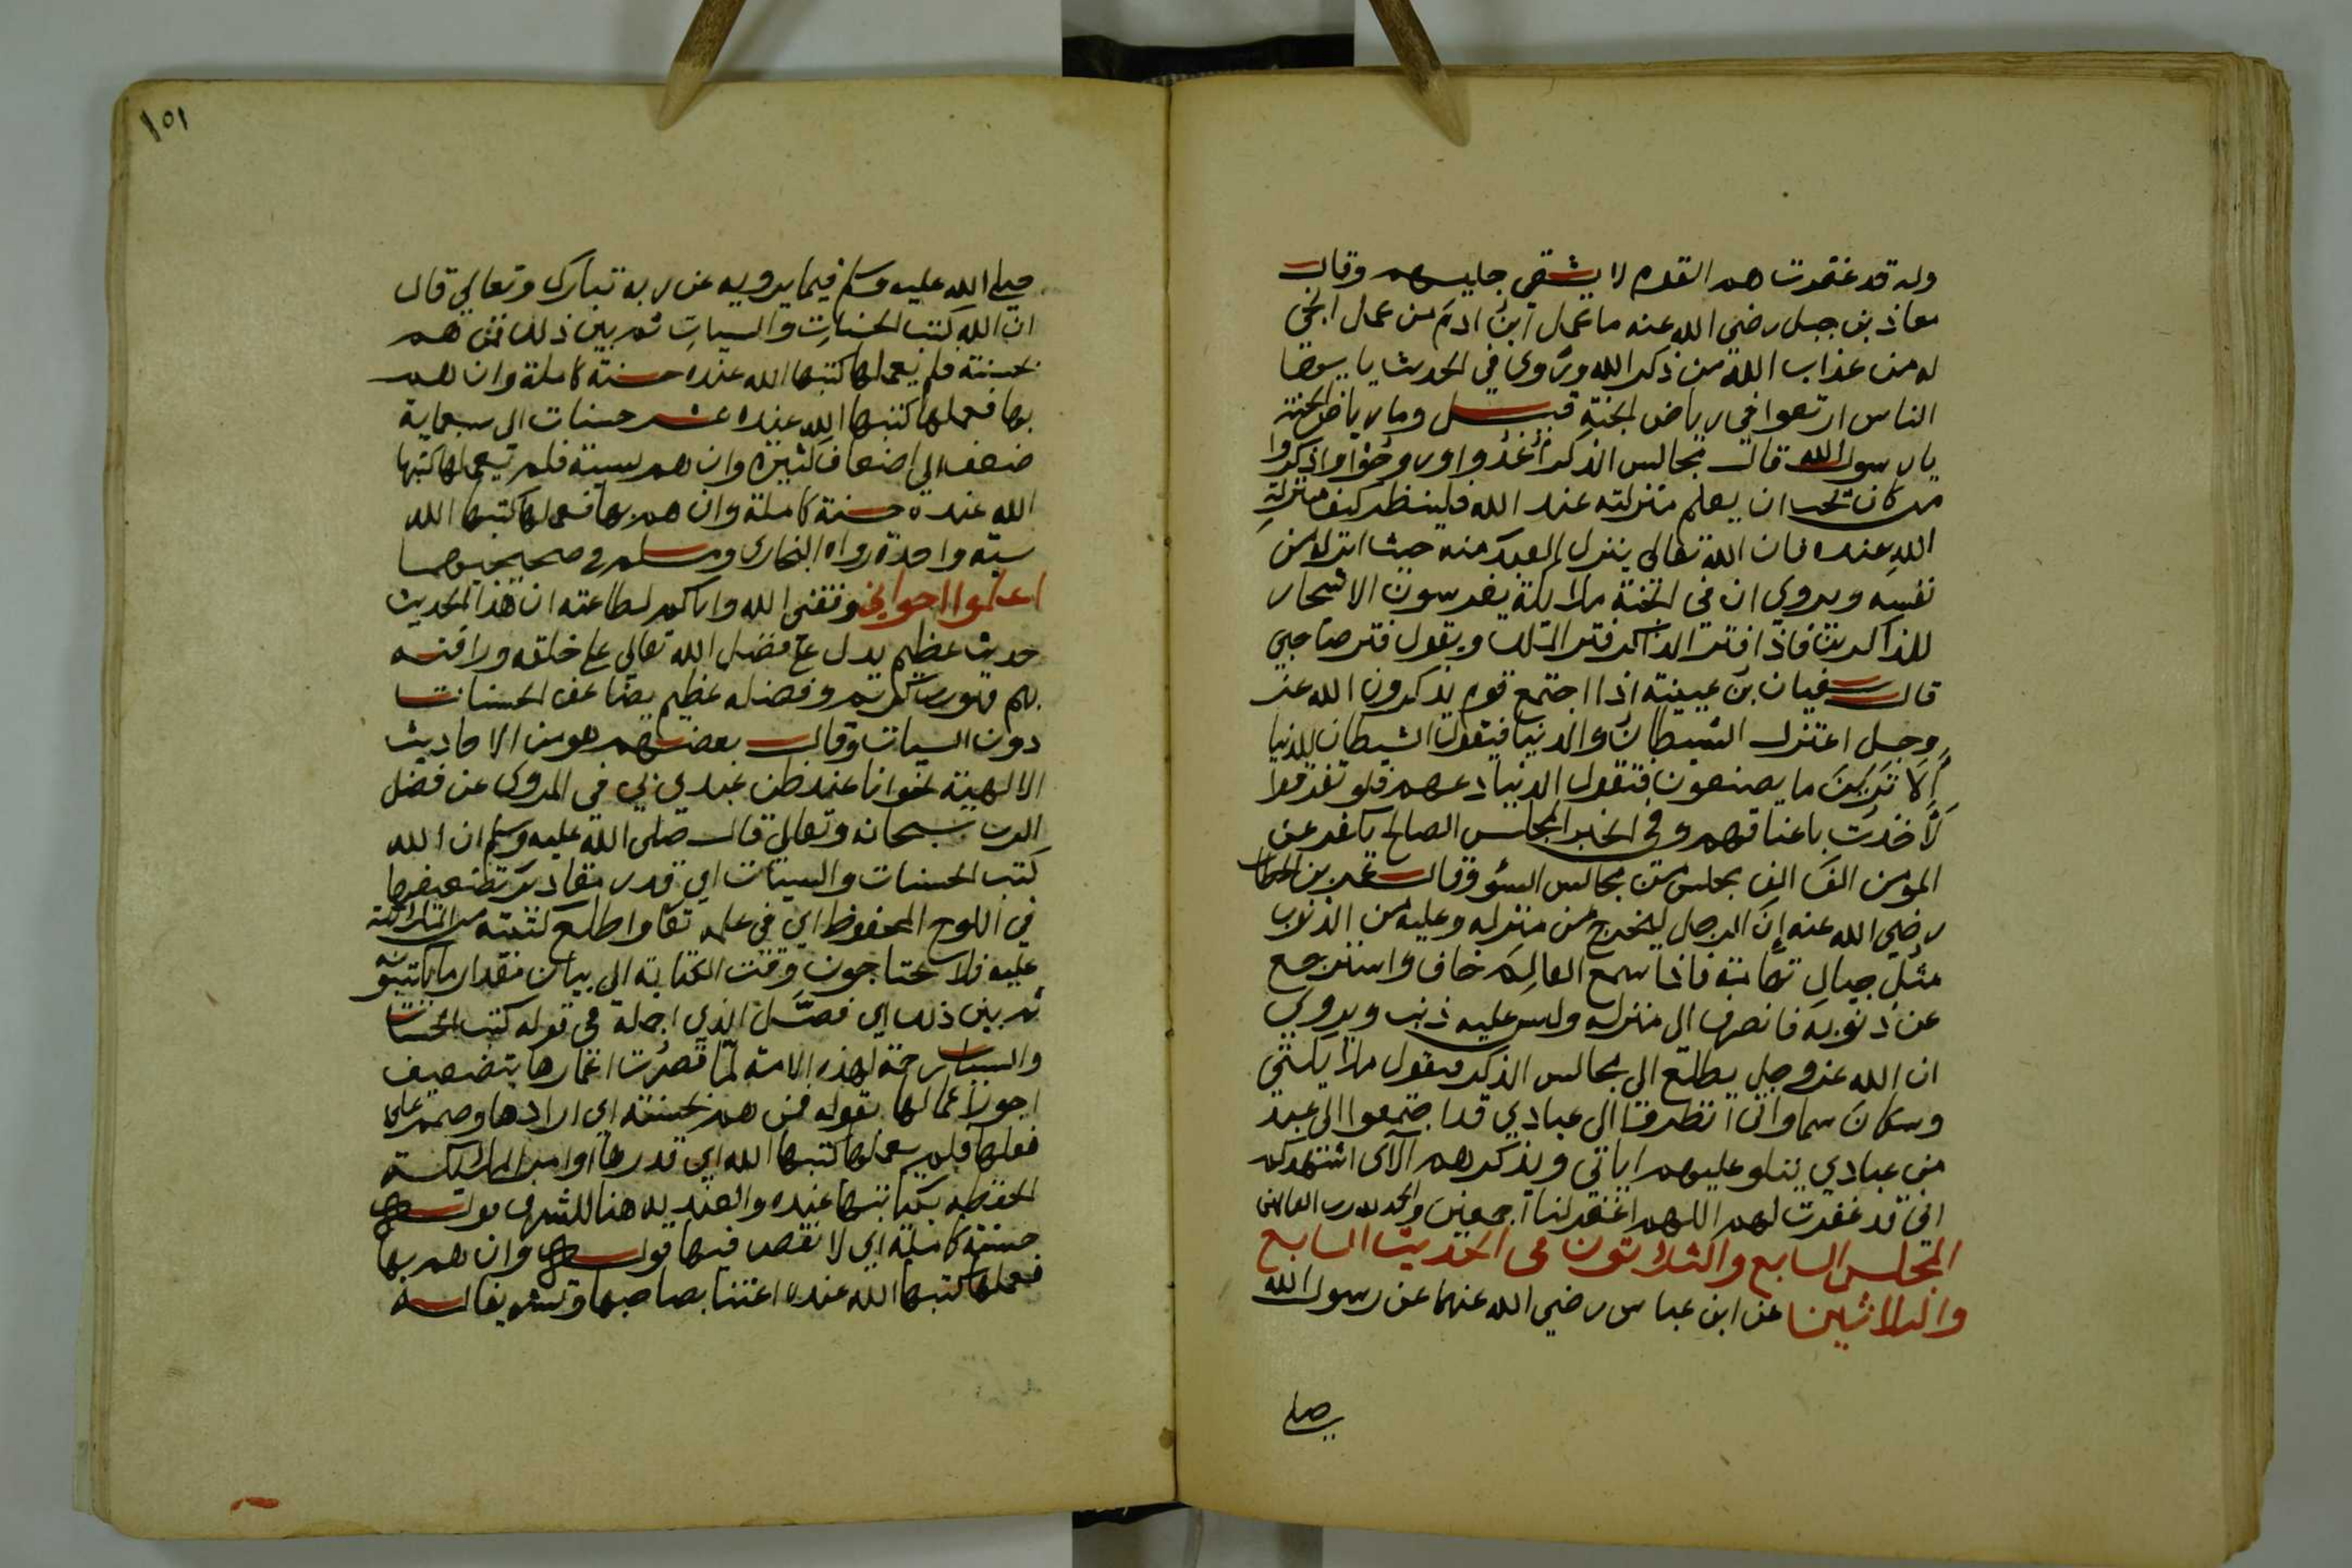 وله قد غفرت هم القوم لا يشقي جليسهم وقال
معاذ بن جبل رضي الله عنه ما عمل ابن ادم من عمل انجي
له من عذاب الله من ذكر الله وروي في الحديث يا ايها
الناس ارتعوا في رياض الجنة قيل وما رياض الجنة
يا رسول الله قال مجالس الذكر أغدوا وروحوا واذكروا
من كان يحب ان يعلم منزلته عند الله فلينظر كيف منزلة
الله عنده فان الله تعالي ينزل العبد منه حيث انزله من
نفسه ويروي ان في الجنة ملائكة يغرسون الاشجار
للذاكرين فاذا فتر الذاكر فتر الملك ويقول فتر صاحبي
قال سفيان بن عيينة اذا اجتمع قوم يذكرون الله عز
وجل اعتزل الشيطان والدنيا فيقول الشيطان للدنيا
ألا ترين ما يصنعون فتقول الدنيا دعهم فلو تفرقوا
لأخذت باعناقهم وفي الخبر المجلس الصالح يكفر عن
المومن الف الف مجلس من مجالس السؤ وقال عمر بن الخطاب
رضي الله عنه إن الرجل ليخرج من منزله وعليه من الذنوب
مثل جبال تهامة فاذا سمع العالم خاف واسترجع
عن ذنوبه فانصرف الي منزله وليس عليه ذنب ويروي
ان الله عز وجل يطلع الي مجالس الذكر فيقول ملائكتي
وسكان سماواتي انظروا الي عبادي قد اجتمعوا الي عبد
من عبادي يتلو عليهم اياتي ويذكرهم آلآي اشهدكم
اني قد غفرت لهم اللهم اغفر لنا اجمعين والحمد لله رب العالمين
المجلس السابع والثلاثون في الحديث السابع
والثلاثين عن ابن عباس رضي الله عنهما عن رسول الله
صلي
١٥١
صلي الله عليه وسلم فيما يرويه عن ربه تبارك وتعالي قال
ان الله كتب الحسنات والسيات ثم بين ذلك فمن هم
بحسنة فلم يعملها كتبها الله عنده حسنة كاملة وان هم
بها فعملها كتبها الله عنده عشر حسنات الي سبعماية
ضعف الي اضعاف كثيرة وان هم بسيئة فلم يعملها كتبها
الله عنده حسنة كاملة وان هم بها فعملها كتبها الله
سيئة واحدة رواه البخاري ومسلم في صحيحيهما
اعلموا اخواني وفقني الله واياكم لطاعته ان هذا الحديث
حديث عظيم يدل علي فضل الله تعالي علي خلقه ورافته
بهم فهو رب كريم وفضله عظيم يضاعف الحسنات
دون السيات وقال بعضهم هو من الاحاديث
الالهية نحو انا عند ظن عبدي بي في المروي عن فضل
الرب سبحانه وتعالي قال صلي الله عليه وسلم ان الله
كتب الحسنات والسيئات اي قدر مقادير تضعيفها
في اللوح المحفوظ اي في علمه تعا واطلع كتبته من الملائكة
عليه فلا يحتاجون وقت الكتابة الي بيان مقدار ما يكتبونه
ثم بين ذلك اي فصل الذي اجمله في قوله كتب الحسنات
والسيات رحمة لهذه الامة لما قصرت اعمارها بتضعيف
اجور اعمالها بقوله فمن هم بحسنة اي ارادها وصمم علي
فعلها فلم يعملها كتبها الله اي قدرها او امر الملائكة
الحفظة بكتابتها عنده والعندية هنا للشرف قوله
حسنة كاملة اي لا نقص فيها قوله وان هم بها
فعملها كتبها الله عنده اعتنا بصاحبها وتشريفا له